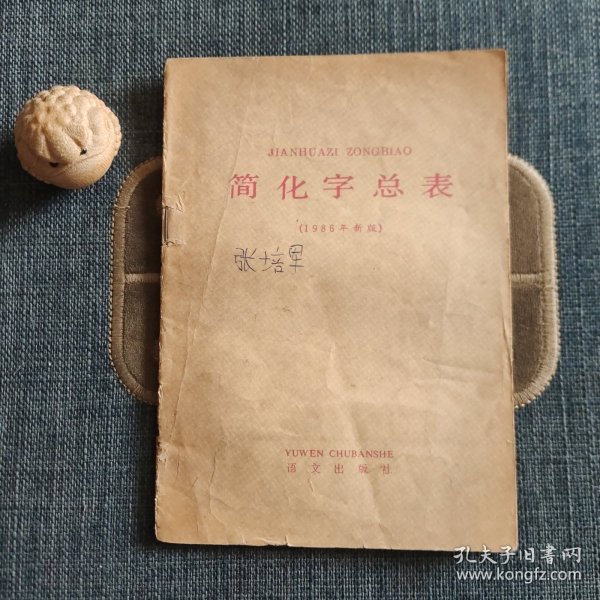 JIANHUAZI ZONGBIAO
简化字总表
(1986年新版)
张培军
YUWEN CHUBANSHE
语文出版社
孔夫子旧书网
www.kongfz.com